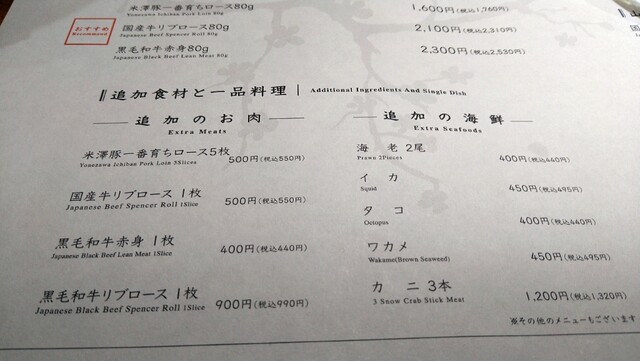 米澤豚一番育ちロース80g 1,600円(税込1,760円)
Yonezawa Ichiban Pork Loin 80g
おすすめ
Recommend
国産牛リブロース80g 2,100円(税込2,310円)
Japanese Beef Spencer Roll 80g
黒毛和牛赤身80g 2,300円(税込2,530円)
Japanese Black Beef Lean Meat 80g
追加食材と一品料理 | Additional Ingredients And Single Dish
追加のお肉
Extra Meats
米澤豚一番育ちロース5枚 500円(税込550円)
Yonezawa Ichiban Pork Loin 5Slices
国産牛リブロース 1枚 500円(税込550円)
Japanese Beef Spencer Roll 1Slice
黒毛和牛赤身 1枚 400円(税込440円)
Japanese Black Beef Lean Meat 1Slice
黒毛和牛リブロース 1枚 900円(税込990円)
Japanese Black Beef Spencer Roll 1Slice
追加の海鮮
Extra Seafoods
海老 2尾 400円(税込440円)
Prawn 2Pieces
イカ 450円(税込495円)
Squid
タコ 400円(税込440円)
Octopus
ワカメ 450円(税込495円)
Wakame(Brown Seaweed)
カニ 3本 1,200円(税込1,320円)
3 Snow Crab Stick Meat
※その他のメニューもございます